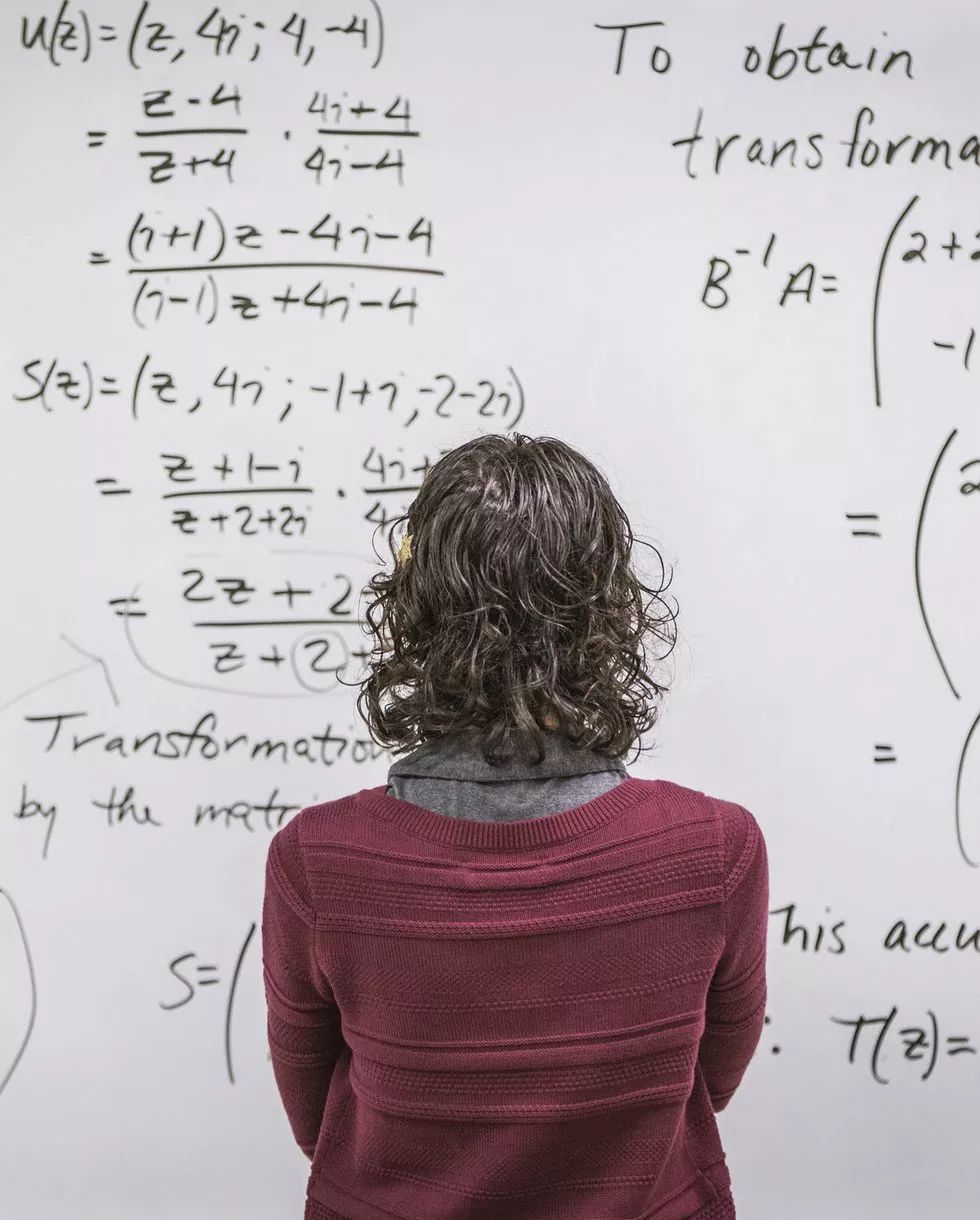 U(z)=(z, 4i; 4, -4)
= z-4/z+4 · 4i+4/4i-4
= (i+1)z-4i-4/(i-1)z+4i-4
S(z)=(z, 4i; -1+i, -2-2i)
= z+1-i/z+2+2i · 4i+
= 2z+2/z+2+
Transformation
by the
S=(
To obtain
B⁻¹A= (2+
-1
= (2
= (
his
: T(z)=